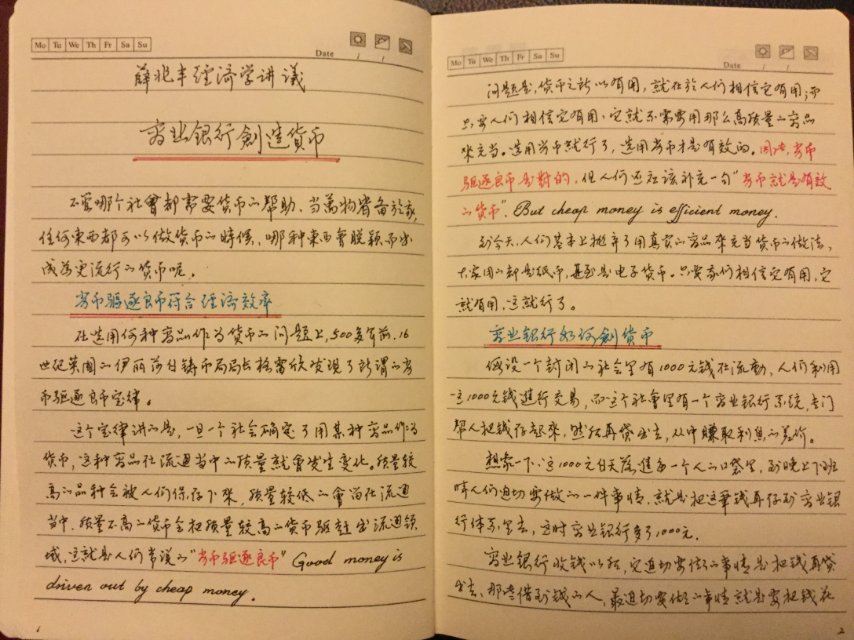 Mo Tu We Th Fr Sa Su
Date / /
薛兆丰經济学讲議
商业銀行創造貨币
不管哪个社會都需要货币的帮助。当萬物皆备於家,
任何東西都可以做貨币的時候,哪种東西會脱颖而出
成為更流行的货币呢。
劣币驅逐良币符合經濟效率
在选用何种商品作為货币的问题上,500多年前,16
世纪英國的伊丽莎白铸币局局长格雷欣发现了所谓的劣
币驱逐良币定律。
这个定律讲的是,一旦一个社会确定了用某种商品作為
货币,这种商品在流通当中的质量就會发生变化。质量较
高的品种会被人们保存下来,质量较低的會留在流通
当中。质量不高的货币会把质量较高的货币驱赶出流通领
域,这就是人们常说的"劣币驱逐良币" Good money is
driven out by cheap money.
1
Mo Tu We Th Fr Sa Su
Date / /
问题是,货币之所以有用,就在於人们相信它有用;而
只要人们相信它有用,它就不需要用那么高质量的商品
來充当。选用劣币就行了,选用劣币才是有效的。因此,劣币
驱逐良币是對的,但人们还应该补充一句"劣币就是有效
的货币". But cheap money is efficient money.
到今天,人们基本上抛弃了用真实的商品來充当货币的做法,
大家用的都是纸币,甚至是电子货币。只要家们相信它有用,它
就有用,这就行了。
商业銀行如何創貨币
假设一个封闭的社会里有1000元钱在流動,人们利用
这1000元钱進行交易,而这个社會里有一个商业銀行系统,专门
帮人把钱存起來,然后再贷出去,从中賺取利息的差价。
想象一下,这1000元白天落進每一个人的口袋里,到晚上下班
時人们迫切要做的一件事情,就是把这筆钱再存到商业銀
行体系里去,这时商业銀行多了1000元。
商业銀行收钱以后,它迫切要做的事情是把钱再贷
出去,那些借到钱的人,最迫切要做的事情就是要把钱花
2